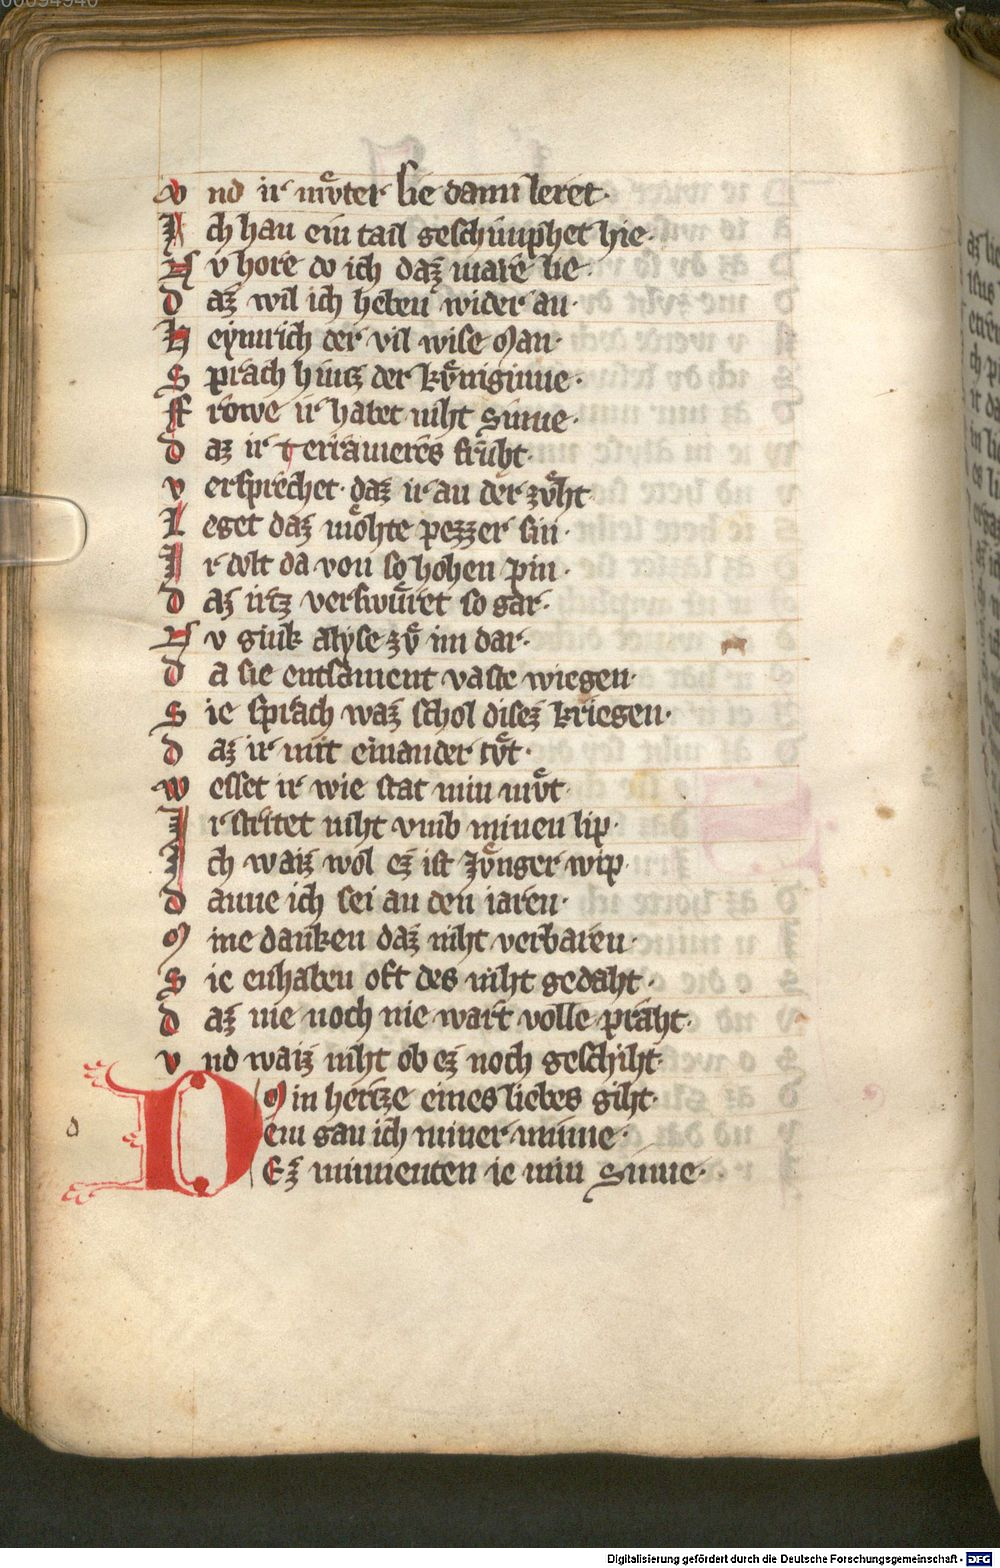 00094940
vnd ir můter sie dann leret·
Ich han ein tail geschimphet hie·
Nv hore do ich daz mare lie·
daz wil ich heben wider an·
Heynrich der vil wise man·
Sprach hintz der kv̊niginne·
ffrowe ir habet niht sinne·
daz ir Terrameres frůht·
versprechet· daz ir an der zv̊ht
Leget daz mo̊hte pezzer sin·
Ir dolt da von so hohen pin·
daz irtz verswůret so gar·
Nv gink alyse zv̊ im dar·
da sie entsament vaste wiegen·
Sie sprach waz schol disez kriegen·
daz ir mit einander tv̊t·
wesset ir wie stat min mv̊t·
Ir stritet niht vmb minen lip·
Ich waiz wol ez ist Jv̊nger wip·
danne ich sei an den iaren·
mine danken daz niht verbaren·
Sie enhaben oft des niht gedaht·
daz nie noch nie wart volle praht·
vnd waiz niht ob ez noch geschiht
d
Min hertze eines liebes giht·
Dem gan ich miner minne·
Ez minnenten ie min Sinne·
Digitalisierung gefördert durch die Deutsche Forschungsgemeinschaft - DFG